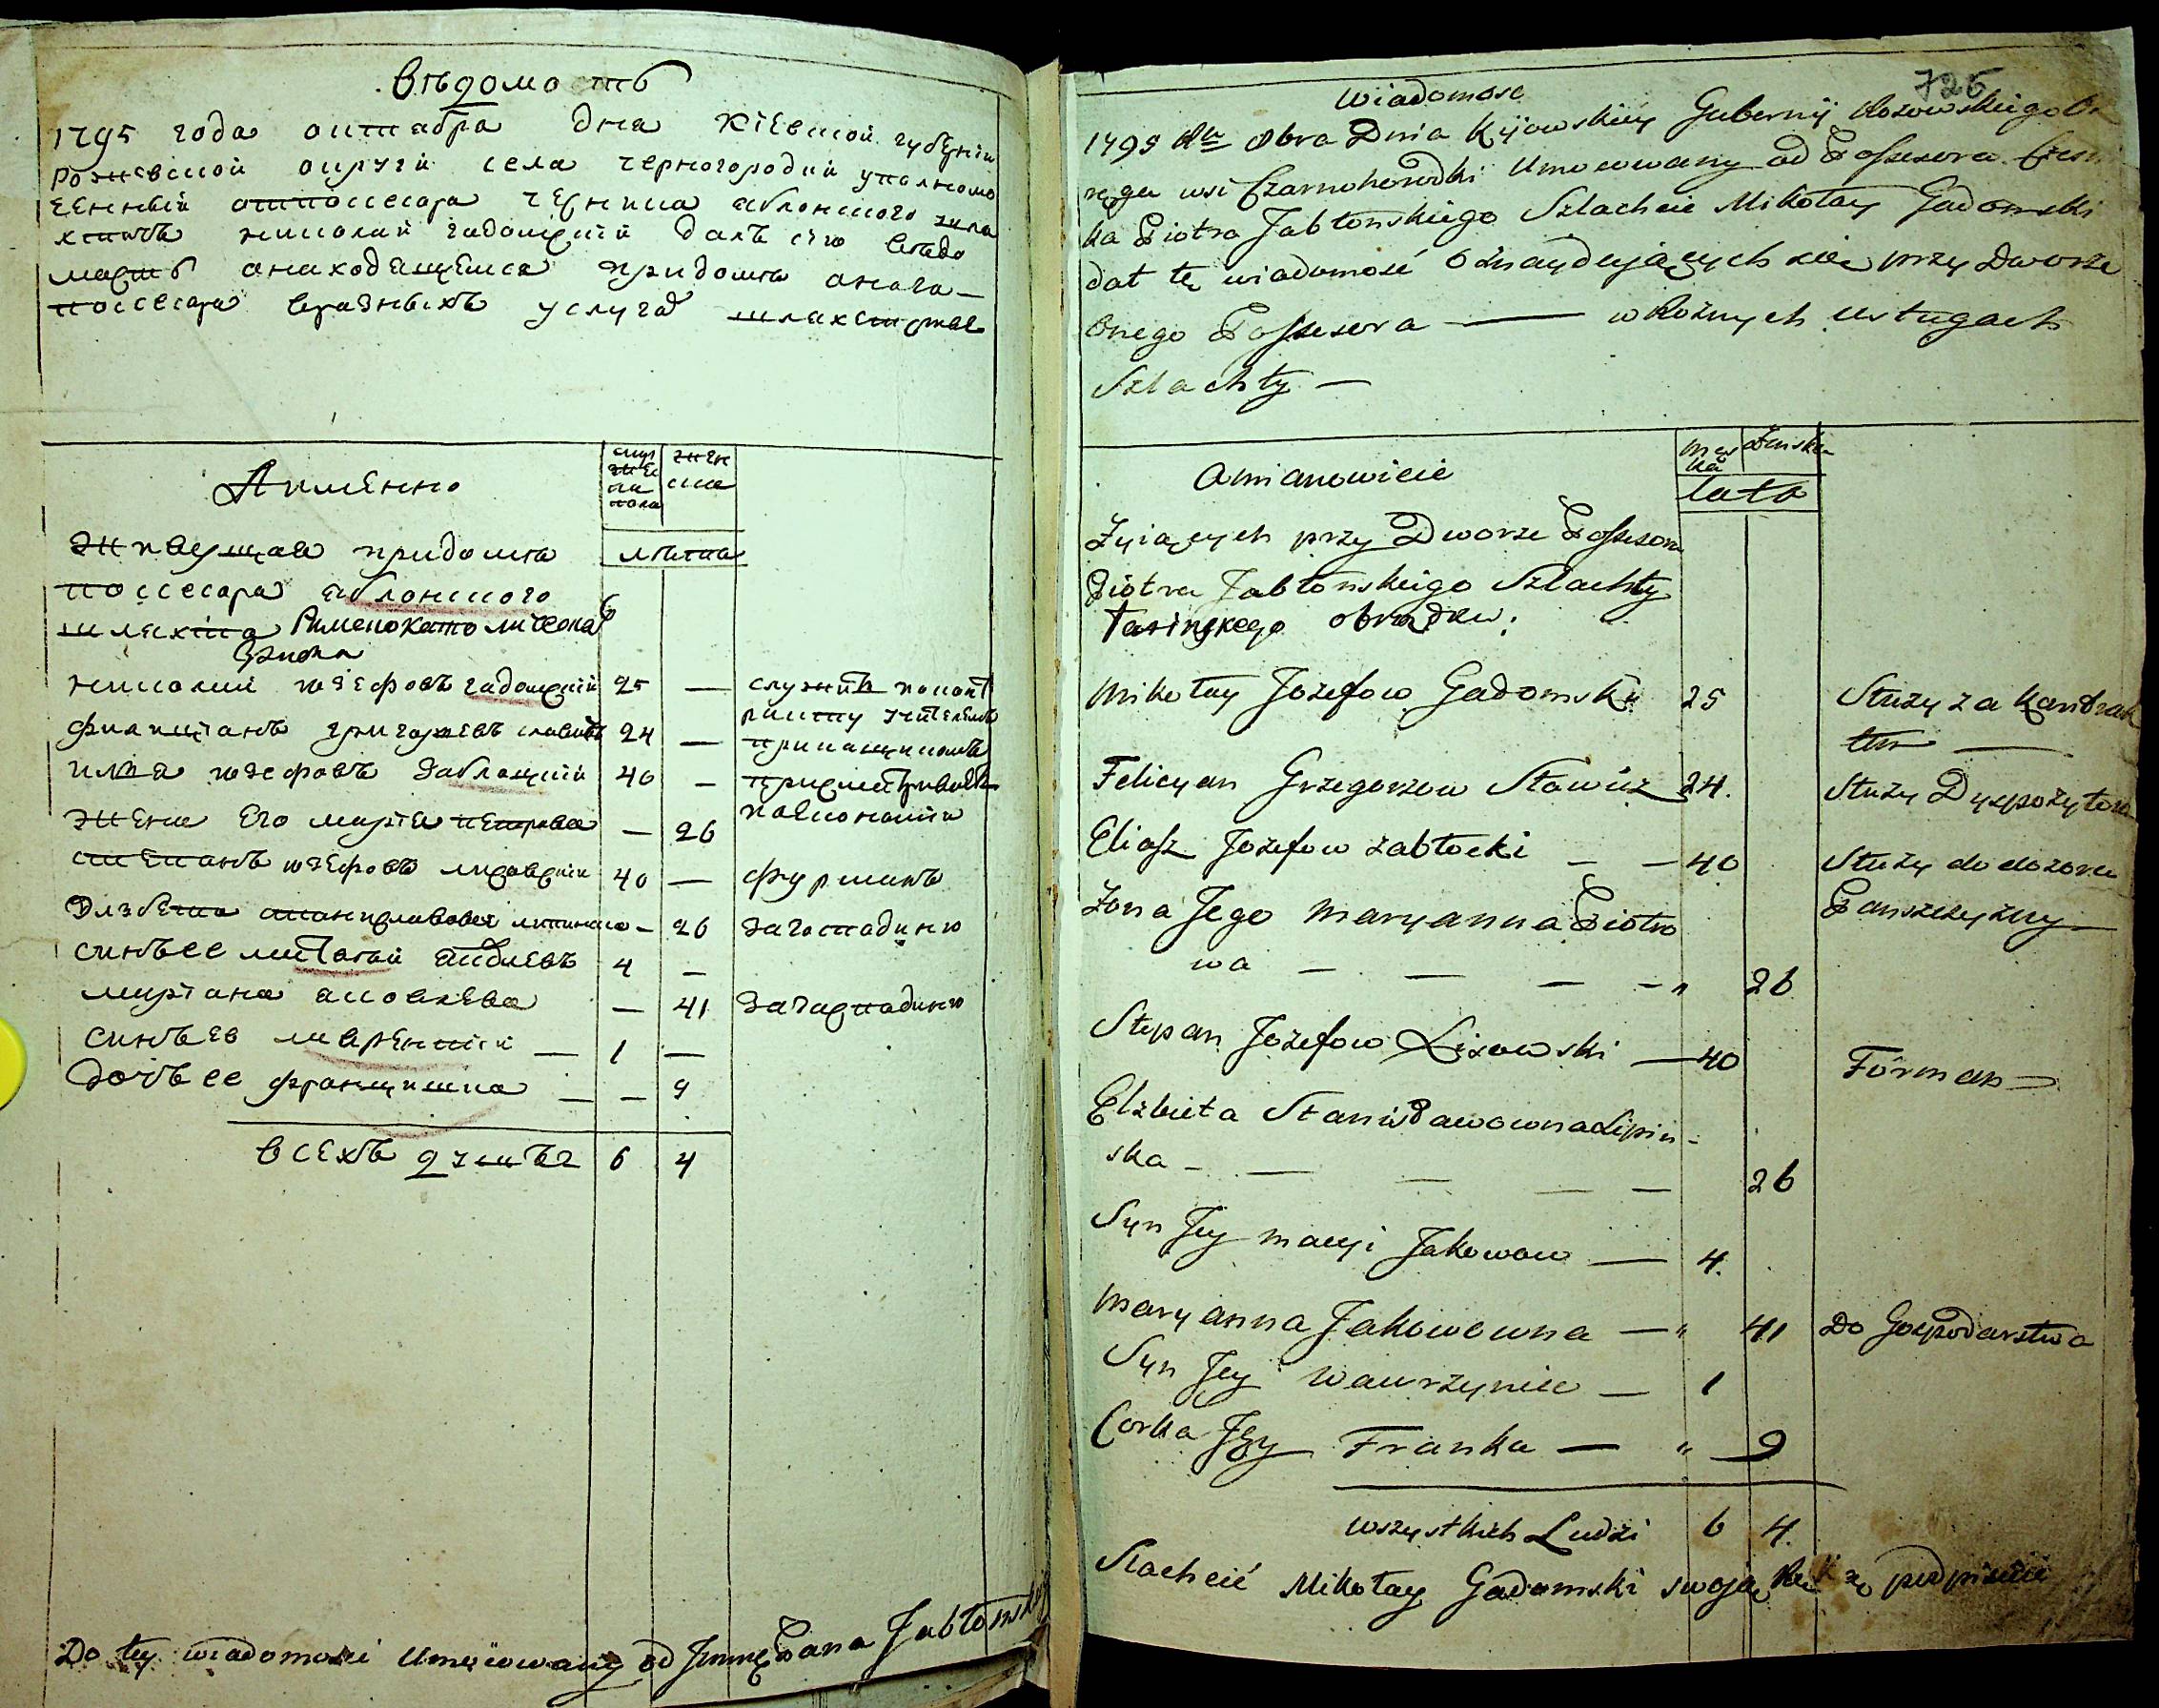 Вѣдомость
1795 года октября дня Кіевской губерніи
рожевской округи села черногородки уполномо
ченный отпоссесора черника яблонского шля
хтичъ николай гадомскій далъ сію ведо
мость о находящемся придомѣ оного —
поссесора вразныхъ услугах шляхетстве
А именно
муж
жес
ка
пола
жен
ска
лѣта
живущая придомѣ
поссесора яблонского
шляхта
николай юзефовъ гадомскій 25 —
служитъ поконт
ракту
филициянъ григорьевъ 24 —
илья юзефовъ заблоцкій 40 —
жена его марья петрова — 26
степанъ юзефовъ лисовскій 40 — фурманъ
Элзбета станиславова — 26 загосподиню
синъ ее матвѣй яковлевъ 4 —
мариана яковлева — 41 загосподиню
синъ ев лаврентій — 1 —
дочь ее францишка — — 9
всехъ 6 4
Do tey wiadomości Umocowany od Jmmę Pana Jabłonsky
725
Wiadomosc
1795 Ru 8bra Dnia Kijowskiey Gubernij Rozowskiego Ok
ręgu wsi Czarnohorodki Umocowany od Possesora Czesni
ka Piotra Jabłonskiego Szlachcic Mikołay Gadomski
dał tę wiadomość o znaydujących się przy Dworze
Onego Possesora — w Rożnych usługach
Szlachty —
Amianowicie
męs
ka
żenska
lata
Żyiących przy Dworze Possesora
Piotra Jabłonskiego Szlachty
obrądku:
Mikołay Jozefow Gadomski 25 Służy za Kontrak
tem —
Felicyan Grzegorzow Sławicz 24. Służy Dyspozytora
Eliasz Jozefow Zabłocki — — 40 Służy do dozoru
Panszczyzny
Zona Jego Maryanna Piotro
wa — — — — " 26
Stepan Jozefow Lisowski — 40 Förman —
Elżbieta Stanisławowna Lipin-
ska — — — — — 26
Syn Jey Macyi Jakowow — 4.
Maryanna Jakowowna — " 41 Do Gospodarstwa
Syn Jey Wawrzyniec — 1
Corka Jey Franka — " 9
Wszystkich Ludzi 6 4.
Slachcić Mikołay Gadomski swoją Ręką podpisuie